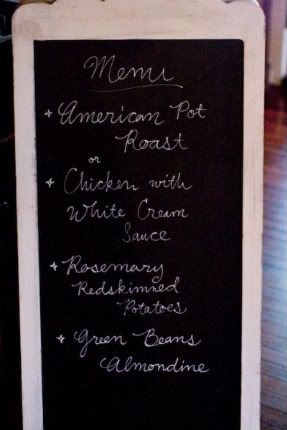 Menu
American Pot
Roast
or
Chicken with
White Cream
Sauce
Rosemary
Redskinned
Potatoes
Green Beans
Almondine